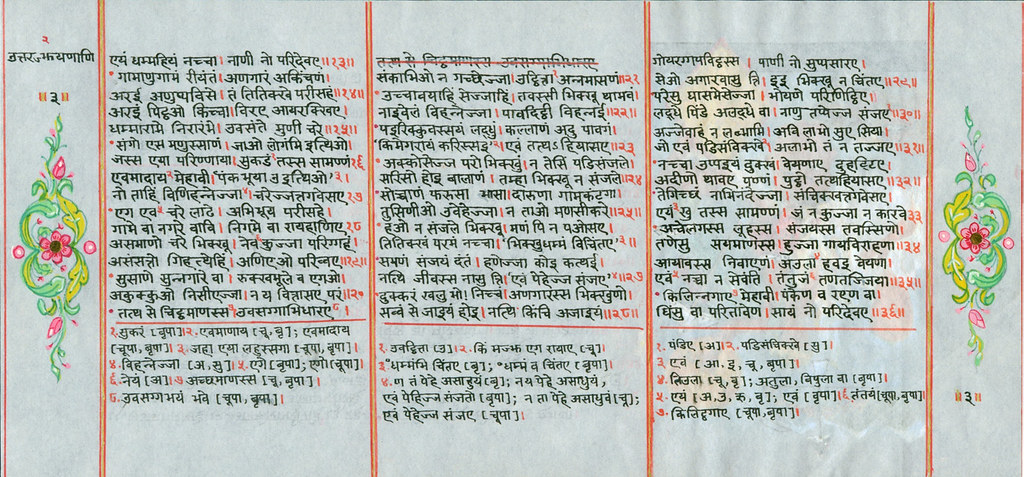 २
उत्तरज्झयणाणि
॥३॥
एयं धम्महियं नच्चा। नाणी नो परिदेवए॥१३॥
गामाणुगामं रीयंतं। अणगारं अकिंचणं।
अरई अणुप्पविसे। तं तितिक्खे परीसहं॥१४॥
अरइं पिट्ठओ किच्चा। विरए आयरक्खिए।
धम्मारामे निरारंभे। उवसंते मुणी चरे॥१५॥
संगो एस मणुस्साणं। जाओ लोगंमि इत्थिओ।
जस्स एया परिण्णाया। सुकडं तस्स सामण्णं१६
एवमादाय मेहावी। 'पंकभूया उ इत्थिओ'३।
नो ताहिं विणिहन्नेज्जा४। चरेज्जत्तगवेसए१७
एग एव५ चरे लाढे। अभिभूय परीसहे।
गामे वा नगरे वावि। निगमे वा रायहाणिए१८
असमाणो चरे भिक्खू। नेव६ कुज्जा परिग्गहं।
असंसत्तो गिहत्थेहिं। अणिएओ परिव्वए॥१९॥
सुसाणे सुन्नगारे वा। रुक्खमूले व एगओ।
अकुक्कुओ निसीएज्जा। न य वित्तासए परं॥२०
तत्थ से चिट्ठमाणस्स७। उवसग्गाभिधारए८।
१. सुकरं [बृपा]। २. एवमाणाय [चू, बृ]; एवमादाय
[चूपा, बृपा]। ३. जहा एया लहुस्सगा [चूपा, बृपा]।
४. विहन्नेज्जा [अ, सु]। ५. एगे [बृपा]; एगो [चूपा]
६. नेयं [अ]। ७ अच्छमाणस्स [चू, बृपा]।
८. उवसग्गभयं भवे [चूपा, बृपा]।
तत्थ से चिट्ठमाणस्स उवसग्गाभिधारए
संकाभीओ न गच्छेज्जा। उट्ठित्ता१ अन्नमासणं॥२१
उच्चावयाहिं सेज्जाहिं। तवस्सी भिक्खू थामवं।
नाइवेलं विहन्नेज्जा। पावदिट्ठी विहन्नई॥२२
पइरिक्कुवस्सयं लद्धुं। कल्लाणं अदु पावगं।
'किमेगरायं करिस्सइ'२। एवं तत्थऽहियासए॥२३
अक्कोसेज्ज परो भिक्खुं। न तेसिं पडिसंजले।
सरिसो होइ बालाणं। तम्हा भिक्खू न संजले॥२४
सोच्चाणं फरुसा भासा। दारुणा गामकंटगा।
तुसिणीओ उवेहेज्जा। न ताओ मणसीकरे॥२५॥
हओ न संजले भिक्खू। मणं पि न पओसए।
तितिक्खं परमं नच्चा। 'भिक्खुधम्मं विचिंतए'३॥
समणं संजयं दंतं। हणेज्जा कोइ कत्थई।
नत्थि जीवस्स नासु त्ति। 'एवं पेहेज्ज संजए'४॥२७
दुक्करं खलु भो! निच्चं। अणगारस्स भिक्खुणो।
सव्वं से जाइयं होइ। नत्थि किंचि अजाइयं॥२८॥
१. उवट्ठित्ता [उ]। २. किं मज्झ एग रायाए [चू]।
३. °धम्मंमि चिंतए [बृ]; °धम्मं व चिंतए [बृपा]।
४. ण तं पेहे असाहुयं [बृ]; न य पेहे असाधुयं,
एवं पेहिज्ज संजतो [बृपा]; न ता पेहे असाधुवं [चू];
एवं पेहेज्ज संजए [चूपा]।
गोयरग्गपविट्ठस्स। पाणी नो सुप्पसारए।
सेओ अगारवासु त्ति। इइ भिक्खू न चिंतए॥२९॥
परेसु घासमेसेज्जा। भोयणे परिणिट्ठिए।
लद्धे पिंडे अलद्धे वा। नाणु तप्पेज्ज संजए॥३०॥
अज्जेवाहं न लब्भामि। अवि लाभो सुए सिया।
जो एवं पडिसंविक्खे२। अलाभो तं न तज्जए॥३१॥
नच्चा उप्पइयं दुक्खं। वेयणाए दुहट्टिए।
अदीणो थावए पण्णं। पुट्ठो तत्थहियासए॥३२॥
तेगिच्छं नाभिनंदेज्जा। संचिक्खत्तगवेसए।
एयं३ खु तस्स सामण्णं। जं न कुज्जा न कारवे३३
अचेलगस्स लूहस्स। संजयस्स तवस्सिणो।
तणेसु सयमाणस्स। हुज्जा गायविराहणा॥३४
आयवस्स निवाएणं। अउला४ हवइ वेयणा।
एवं५ नच्चा न सेवंति। तंतुजं६ तणतज्जिया॥३५॥
किलिन्नगाए७ मेहावी। पंकेण व रएण वा।
घिंसु वा परितावेण। सायं नो परिदेवए॥३६॥
१. पंडिए [अ]। २. पडिसंचिक्खे [सु]।
३. एवं [आ, इ, चू, बृपा]।
४. तिउला [चू, बृ]; अतुला, विपुला वा [बृपा]।
५. एयं [अ, उ, ऋ, बृ]; एवं [बृपा]। ६. तंतयं [चूपा, बृपा]।
७. किलिट्ठगाए [चूपा, बृपा]।
॥३॥